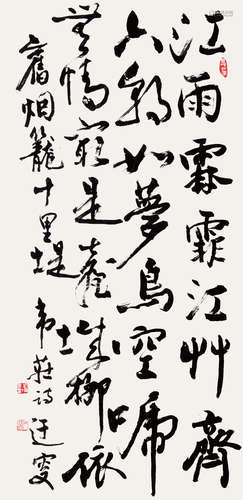 江雨霏霏江艸齊
六朝如夢鳥空啼
無情最是臺城柳依
舊烟籠十里堤 韋莊詩 迂叟